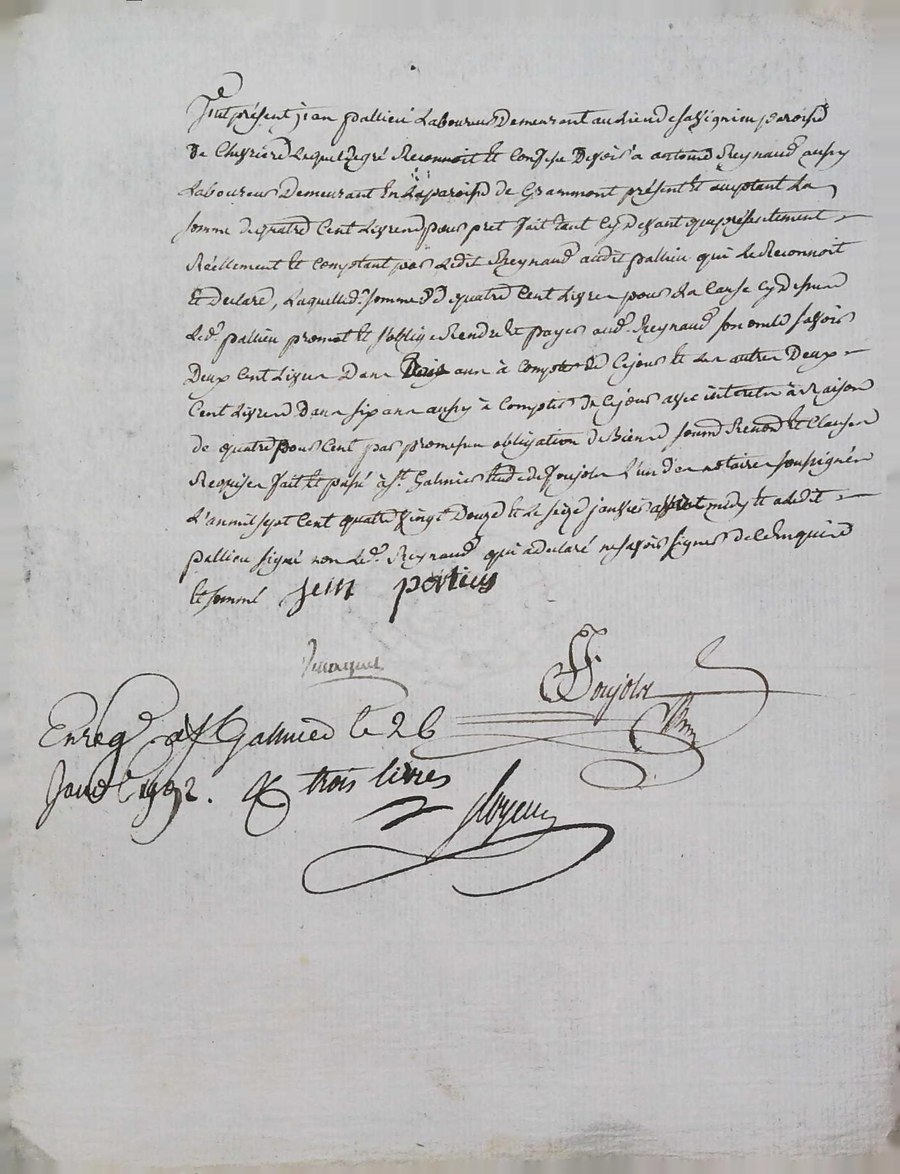 fut présent jean pallieu Laboureur Demeurant au Lieu de parroisse
De Chevriere Lequel de gré Reconnoit et Confesse Devoir a antoine Reynaud aussy
Laboureur Demeurant En La paroisse de Grammont présent et acceptant La
somme de quatre Cent Livres pour pret fait tant Cy devant que présentement
Réellement et Comptant par Ledit Reynaud audit pallieu qui Le Reconnoit
Et declare, Laquelle de somme de quatre Cent Livres pour La Cause Cy dessus
Le d. pallieu promet et s'oblige Rendre et payer aud. Reynaud savoir
Deux Cent Livres Dans ans à Compter de Cejour et Les autres Deux
Cent Livres dans six ans aussy à Compter de Cejour avec intérêts à Raison
de quatre pour Cent par promesse obligation de Biens soumis Renon et Clauses
Requises fait et passé à St. Galmier Etude de Soujols L'un des notaires soussignés
L'an mil sept Cent quatre vingt Douze et Le seize janvier avant midy et a Ledit
pallieu signé non Le d. Reynaud qui a declaré ne savoir signer de ce Enquis
et sommé jean
Soujols
Enreg. a St Galmier le 26
Janv. 1792. trois livres